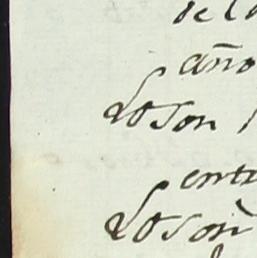 de la
año
Lo son
entr
Lo son